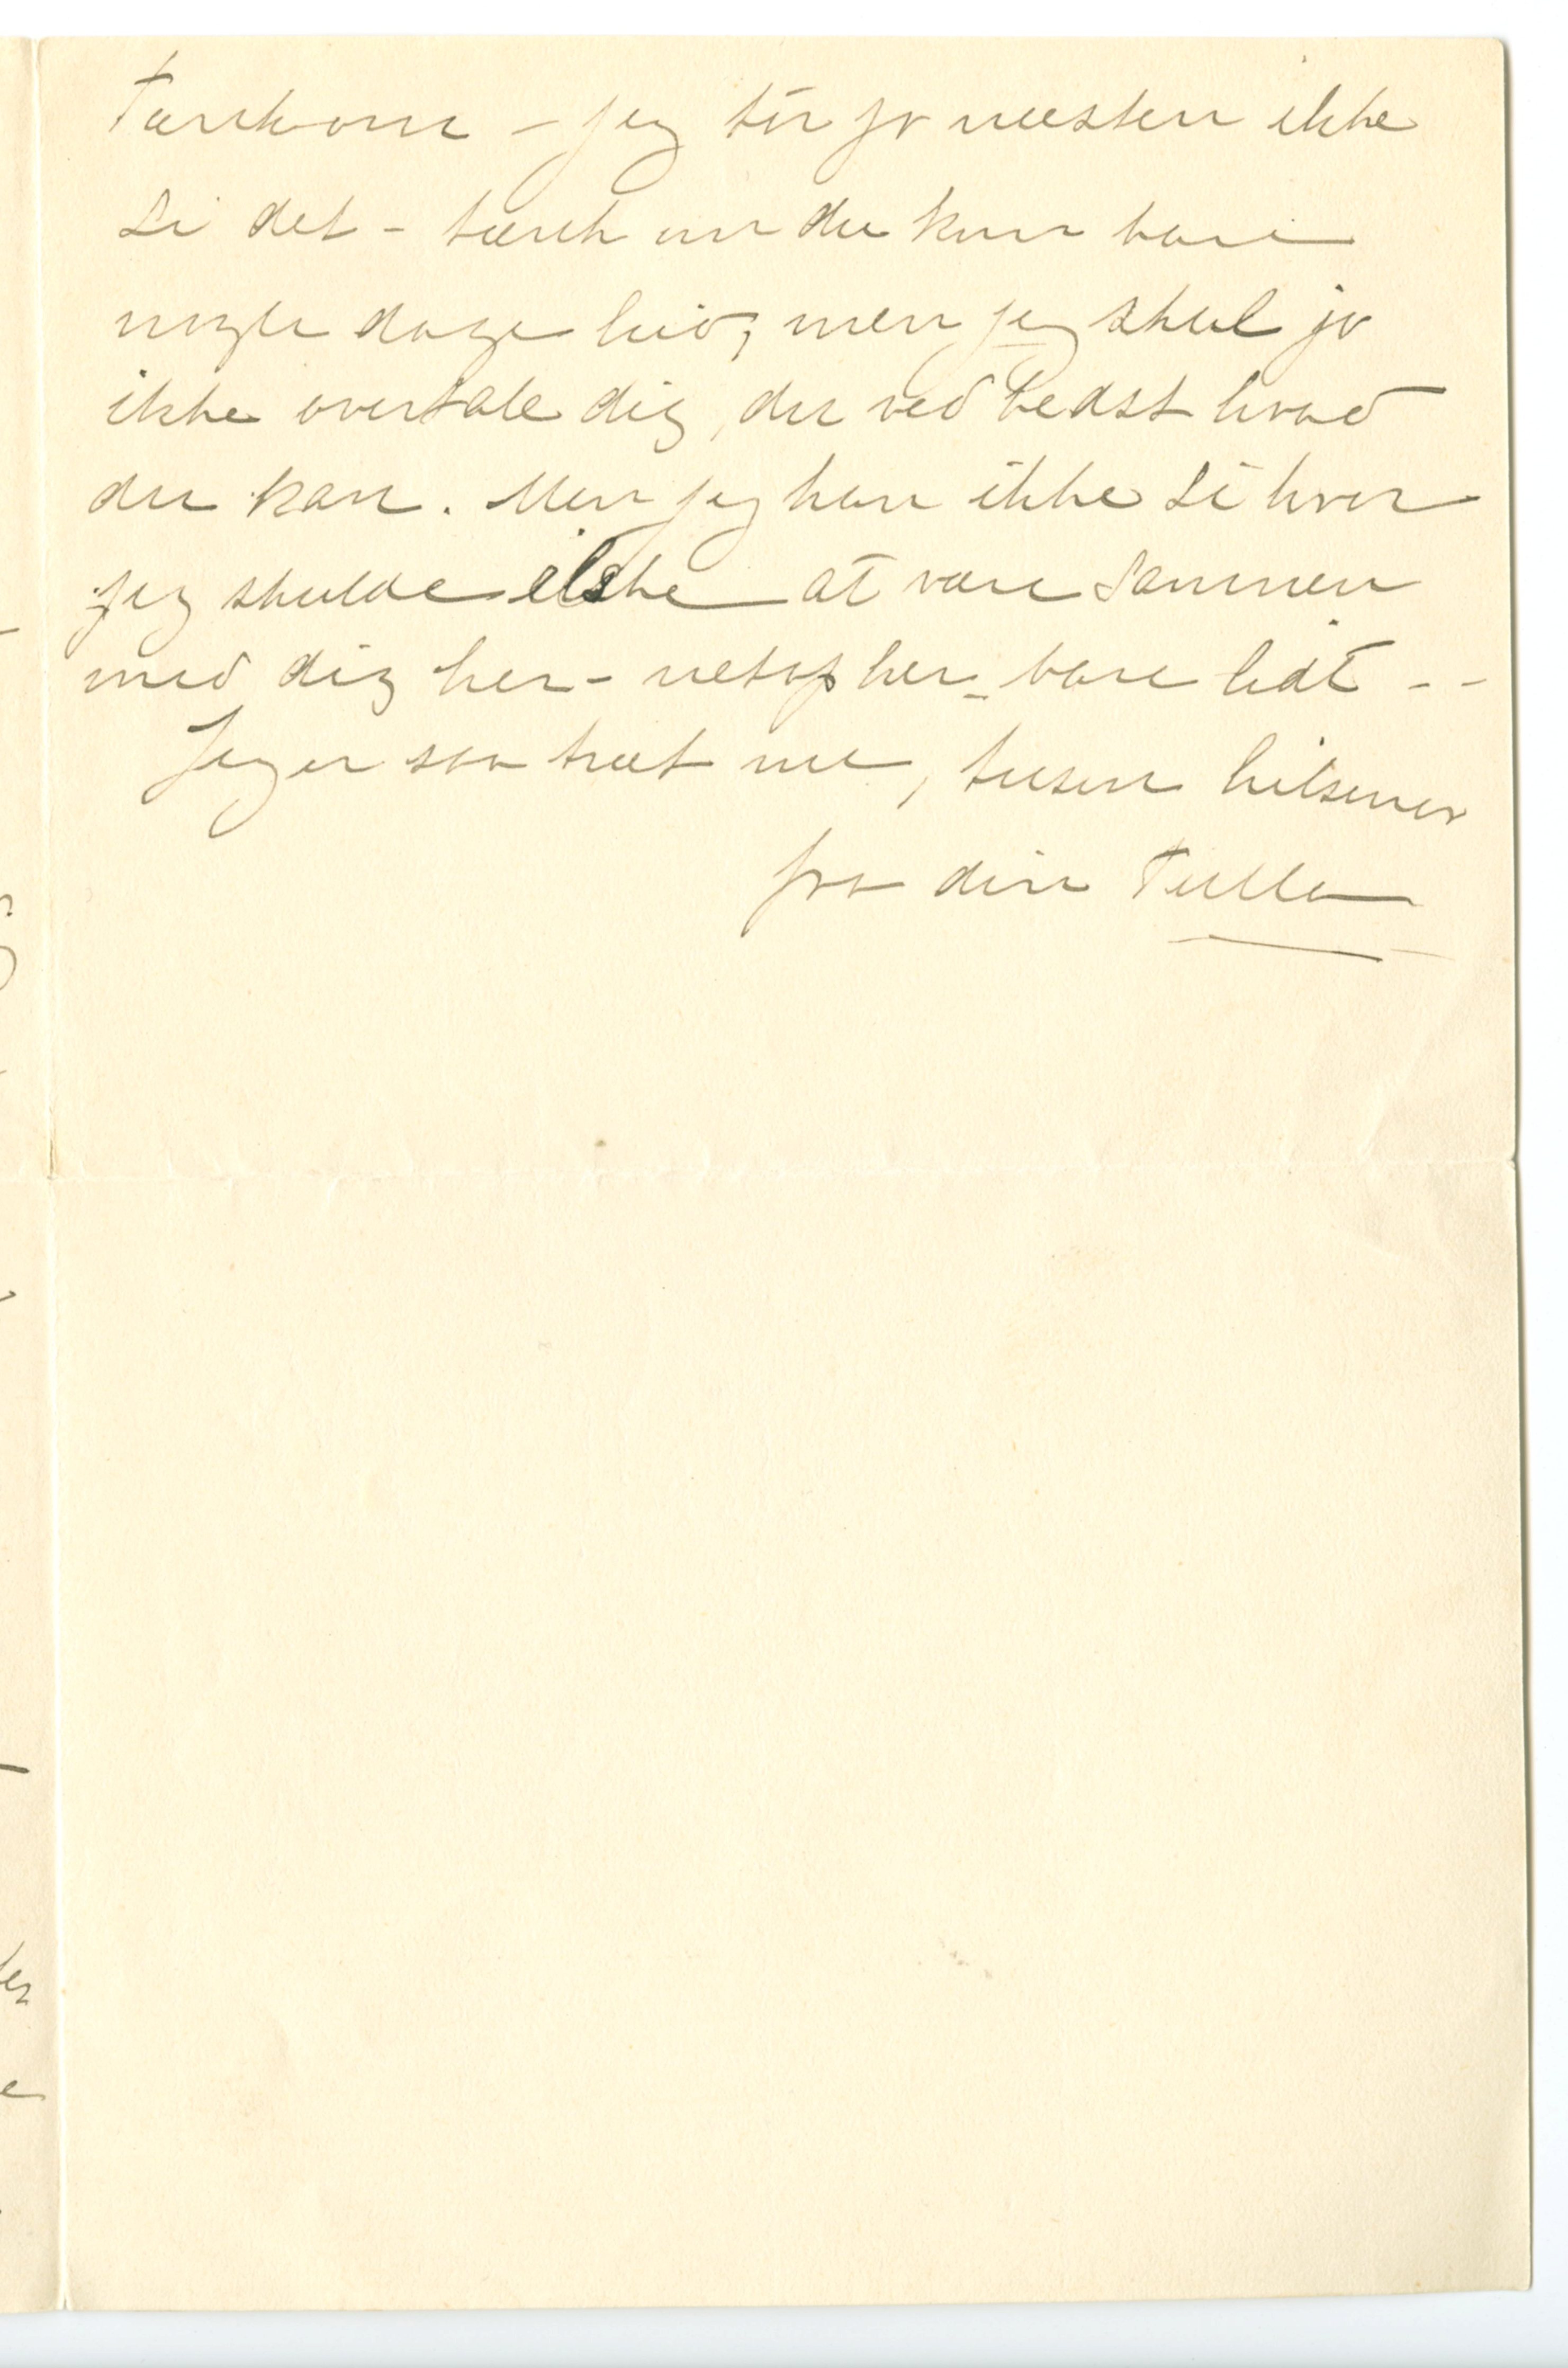 Tænk om – jeg tør jo næsten ikke
si det – tænk om du kom bare
nogle dage hid, men jeg skal jo
ikke overtale dig, du ved bedst hvad
du kan. Men jeg kan ikke si hvor
jeg skulde elske at være sammen
med dig her – netop her – bare lidt – –
Jeg er saa træt nu, tusen hilsener
fra din Tulla